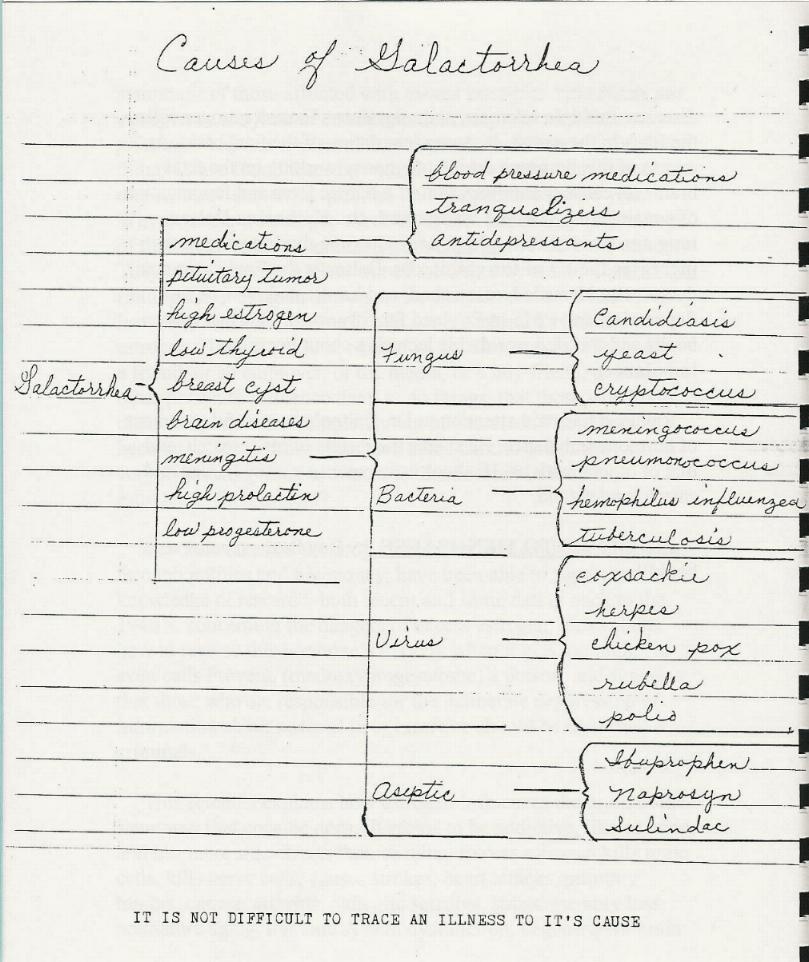 Causes of Galactorrhea
blood pressure medications
tranquelizers
antidepressants
Galactorrhea
medications
pituitary tumor
high estrogen
low thyroid
breast cyst
brain diseases
meningitis
high prolactin
low progesterone
Fungus
Candidiasis
yeast
cryptococcus
Bacteria
meningococcus
pneumonococcus
hemophilus influenzea
tuberculosis
Virus
coxsackie
herpes
chicken pox
rubella
polio
Aseptic
Ibuprophen
Naprosyn
Sulindac
IT IS NOT DIFFICULT TO TRACE AN ILLNESS TO IT'S CAUSE